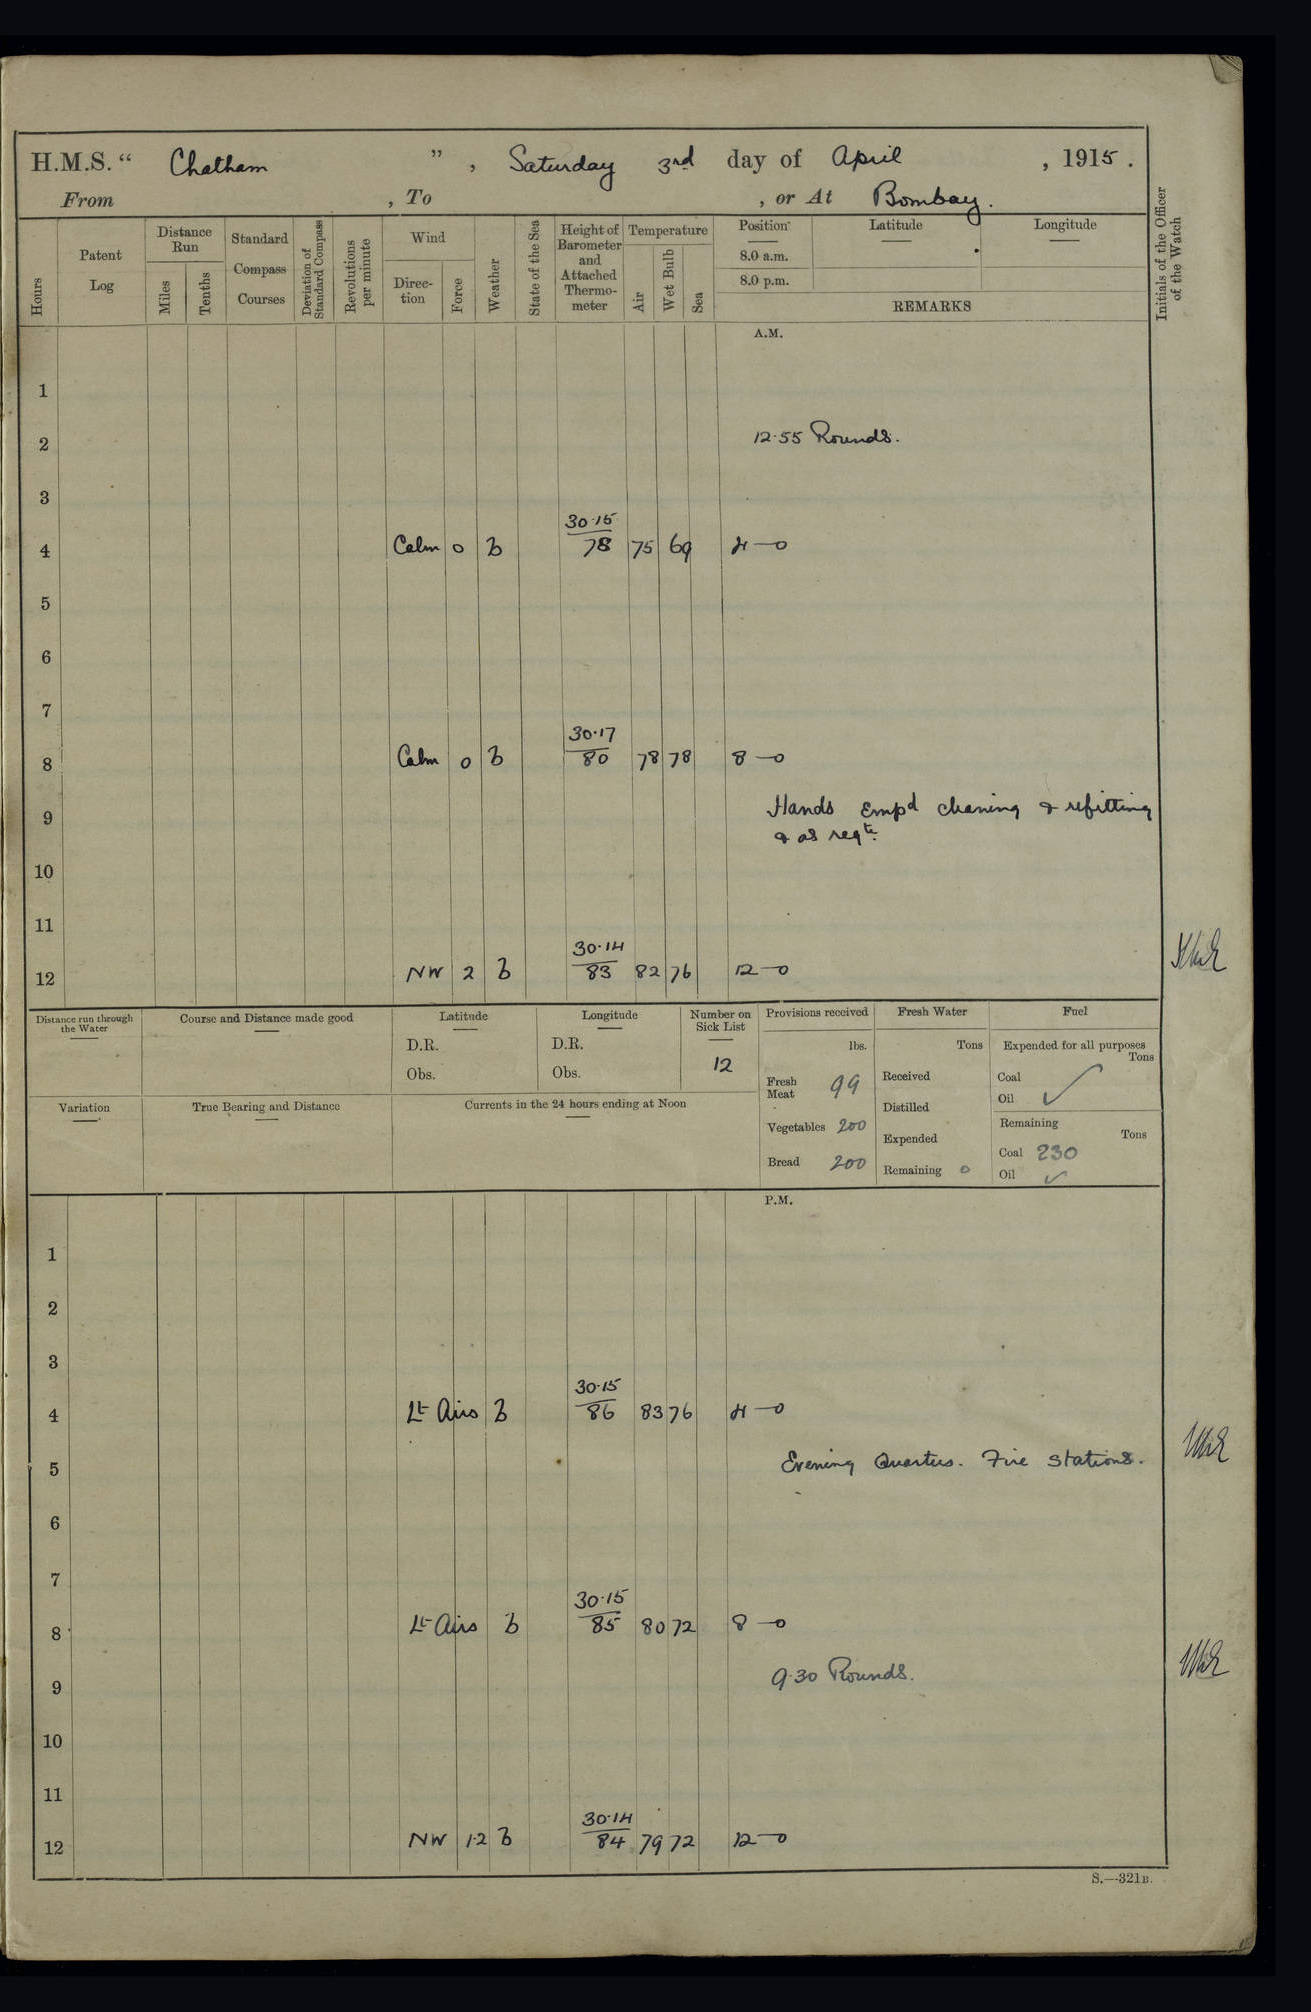 H.M.S. “ Chatham ” , Saturday 3rd day of April , 1915 .
From , To , or At Bombay.
Hours
Patent Log
Distance Run
Miles
Tenths
Standard Compass Courses
Deviation of Standard Compass
Revolutions per minute
Wind
Direction
Force
Weather
State of the Sea
Height of Barometer and Attached Thermometer
Temperature
Air
Wet Bulb
Sea
Position Latitude Longitude
8.0 a.m.
8.0 p.m.
REMARKS
Initials of the Officer of the Watch
A.M.
1
2 12·55 Rounds.
3
30·15
4 Calm 0 b 78 75 69 4—0
5
6
7
30·17
8 Calm 0 b 80 78 78 8—0
9 Hands Empd cleaning & refitting
& as reqte.
10
11
30·14
12 NW 2 b 83 82 76 12—0
Distance run through the Water
Course and Distance made good
Latitude
D.R.
Obs.
Longitude
D.R.
Obs.
Number on Sick List
12
Provisions received
lbs.
Fresh Meat 99
Vegetables 200
Bread 200
Fresh Water
Tons
Received
Distilled
Expended
Remaining 0
Fuel
Expended for all purposes
Tons
Coal ✓
Oil ✓
Remaining
Tons
Coal 230
Oil ✓
Variation
True Bearing and Distance
Currents in the 24 hours ending at Noon
P.M.
1
2
3
30·15
4 Lt Airs b 86 83 76 4—0
5 Evening Quarters. Fire Stations.
6
7
30·15
8 Lt Airs b 85 80 72 8—0
9 9·30 Rounds.
10
11
30·14
12 NW 1·2 b 84 79 72 12—0
S.—321B.